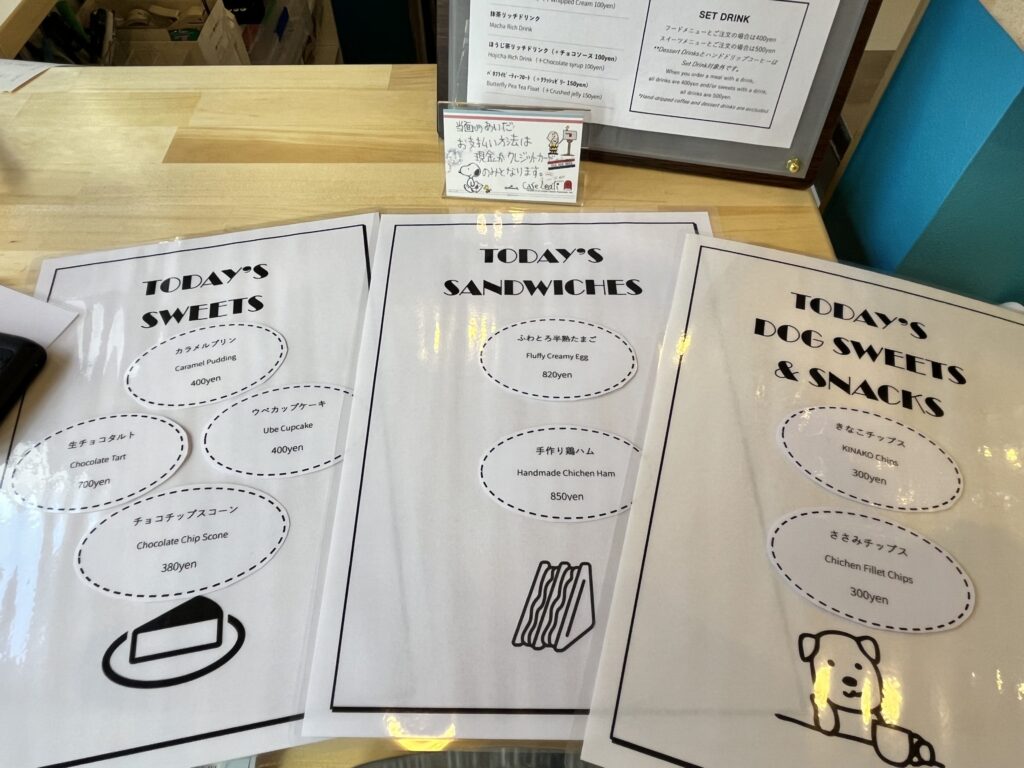 抹茶リッチドリンク
Macha Rich Drink
ほうじ茶リッチドリンク (+チョコソース 100yen)
Hojicha Rich Drink (+Chocolate syrup 100yen)
バタフライピーティーフロート (+クラッシュゼリー 150yen)
Butterfly Pea Tea Float (+Crushed jelly 150yen)
SET DRINK
フードメニューとご注文の場合は400yen
スイーツメニューとご注文の場合は500yen
**Dessert Drinksとハンドドリップコーヒーは
Set Drink対象外です。
When you order a meal with a drink,
all drinks are 400yen and/or sweets with a drink,
all drinks are 500yen.
*Hand-dripped coffee and dessert drinks are excluded
当面のあいだ
お支払い方法は
現金かクレジットカード
のみとなります。
TODAY'S
SWEETS
カラメルプリン
Caramel Pudding
400yen
ウベカップケーキ
Ube Cupcake
400yen
生チョコタルト
Chocolate Tart
700yen
チョコチップスコーン
Chocolate Chip Scone
380yen
TODAY'S
SANDWICHES
ふわとろ半熟たまご
Fluffy Creamy Egg
820yen
手作り鶏ハム
Handmade Chichen Ham
850yen
TODAY'S
DOG SWEETS
& SNACKS
きなこチップス
KINAKO Chips
300yen
ささみチップス
Chichen Fillet Chips
300yen